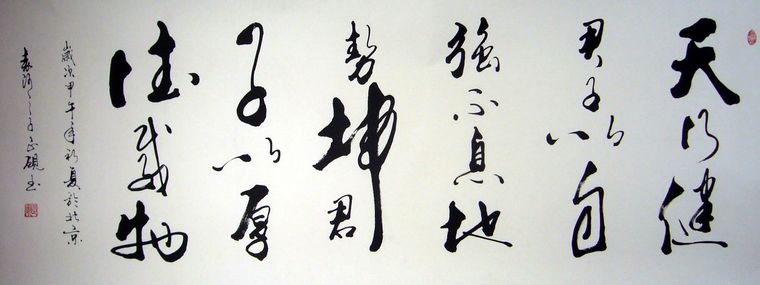 天行健
君子以自
強不息地
勢坤君
子以厚
德載物
歲次甲午年初夏於北京